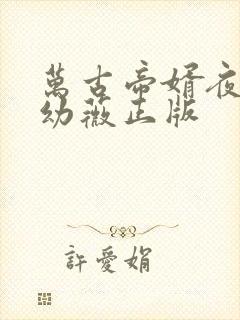 萬古帝婿夜
幼薇正版
許愛娟